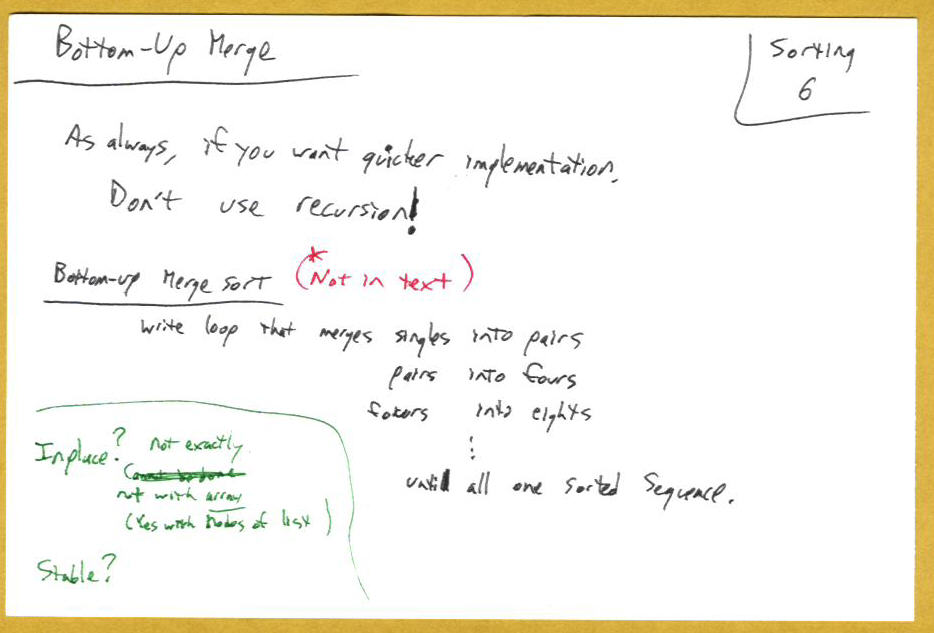 Bottom-Up Merge
Sorting
6
As always, if you want quicker implementation,
Don't use recursion!
Bottom-up Merge sort (*Not in text)
write loop that merges singles into pairs
pairs into fours
fours into eights
⋮
until all one sorted sequence.
Inplace? not exactly
not with array
(Yes with Nodes of list)
Stable?